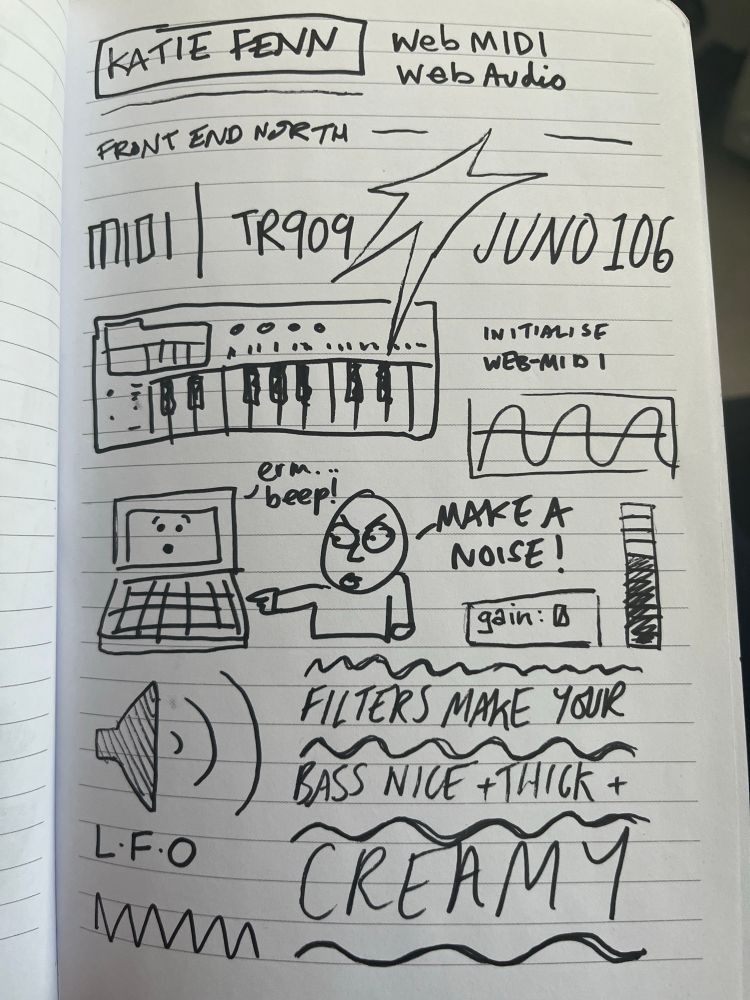 KATIE FENN
Web MIDI
Web Audio
FRONT END NORTH
MIDI
TR909
JUNO 106
INITIALISE
WEB-MIDI
erm...
beep!
MAKE A
NOISE!
gain: 0
FILTERS MAKE YOUR
BASS NICE + THICK +
CREAMY
L.F.O